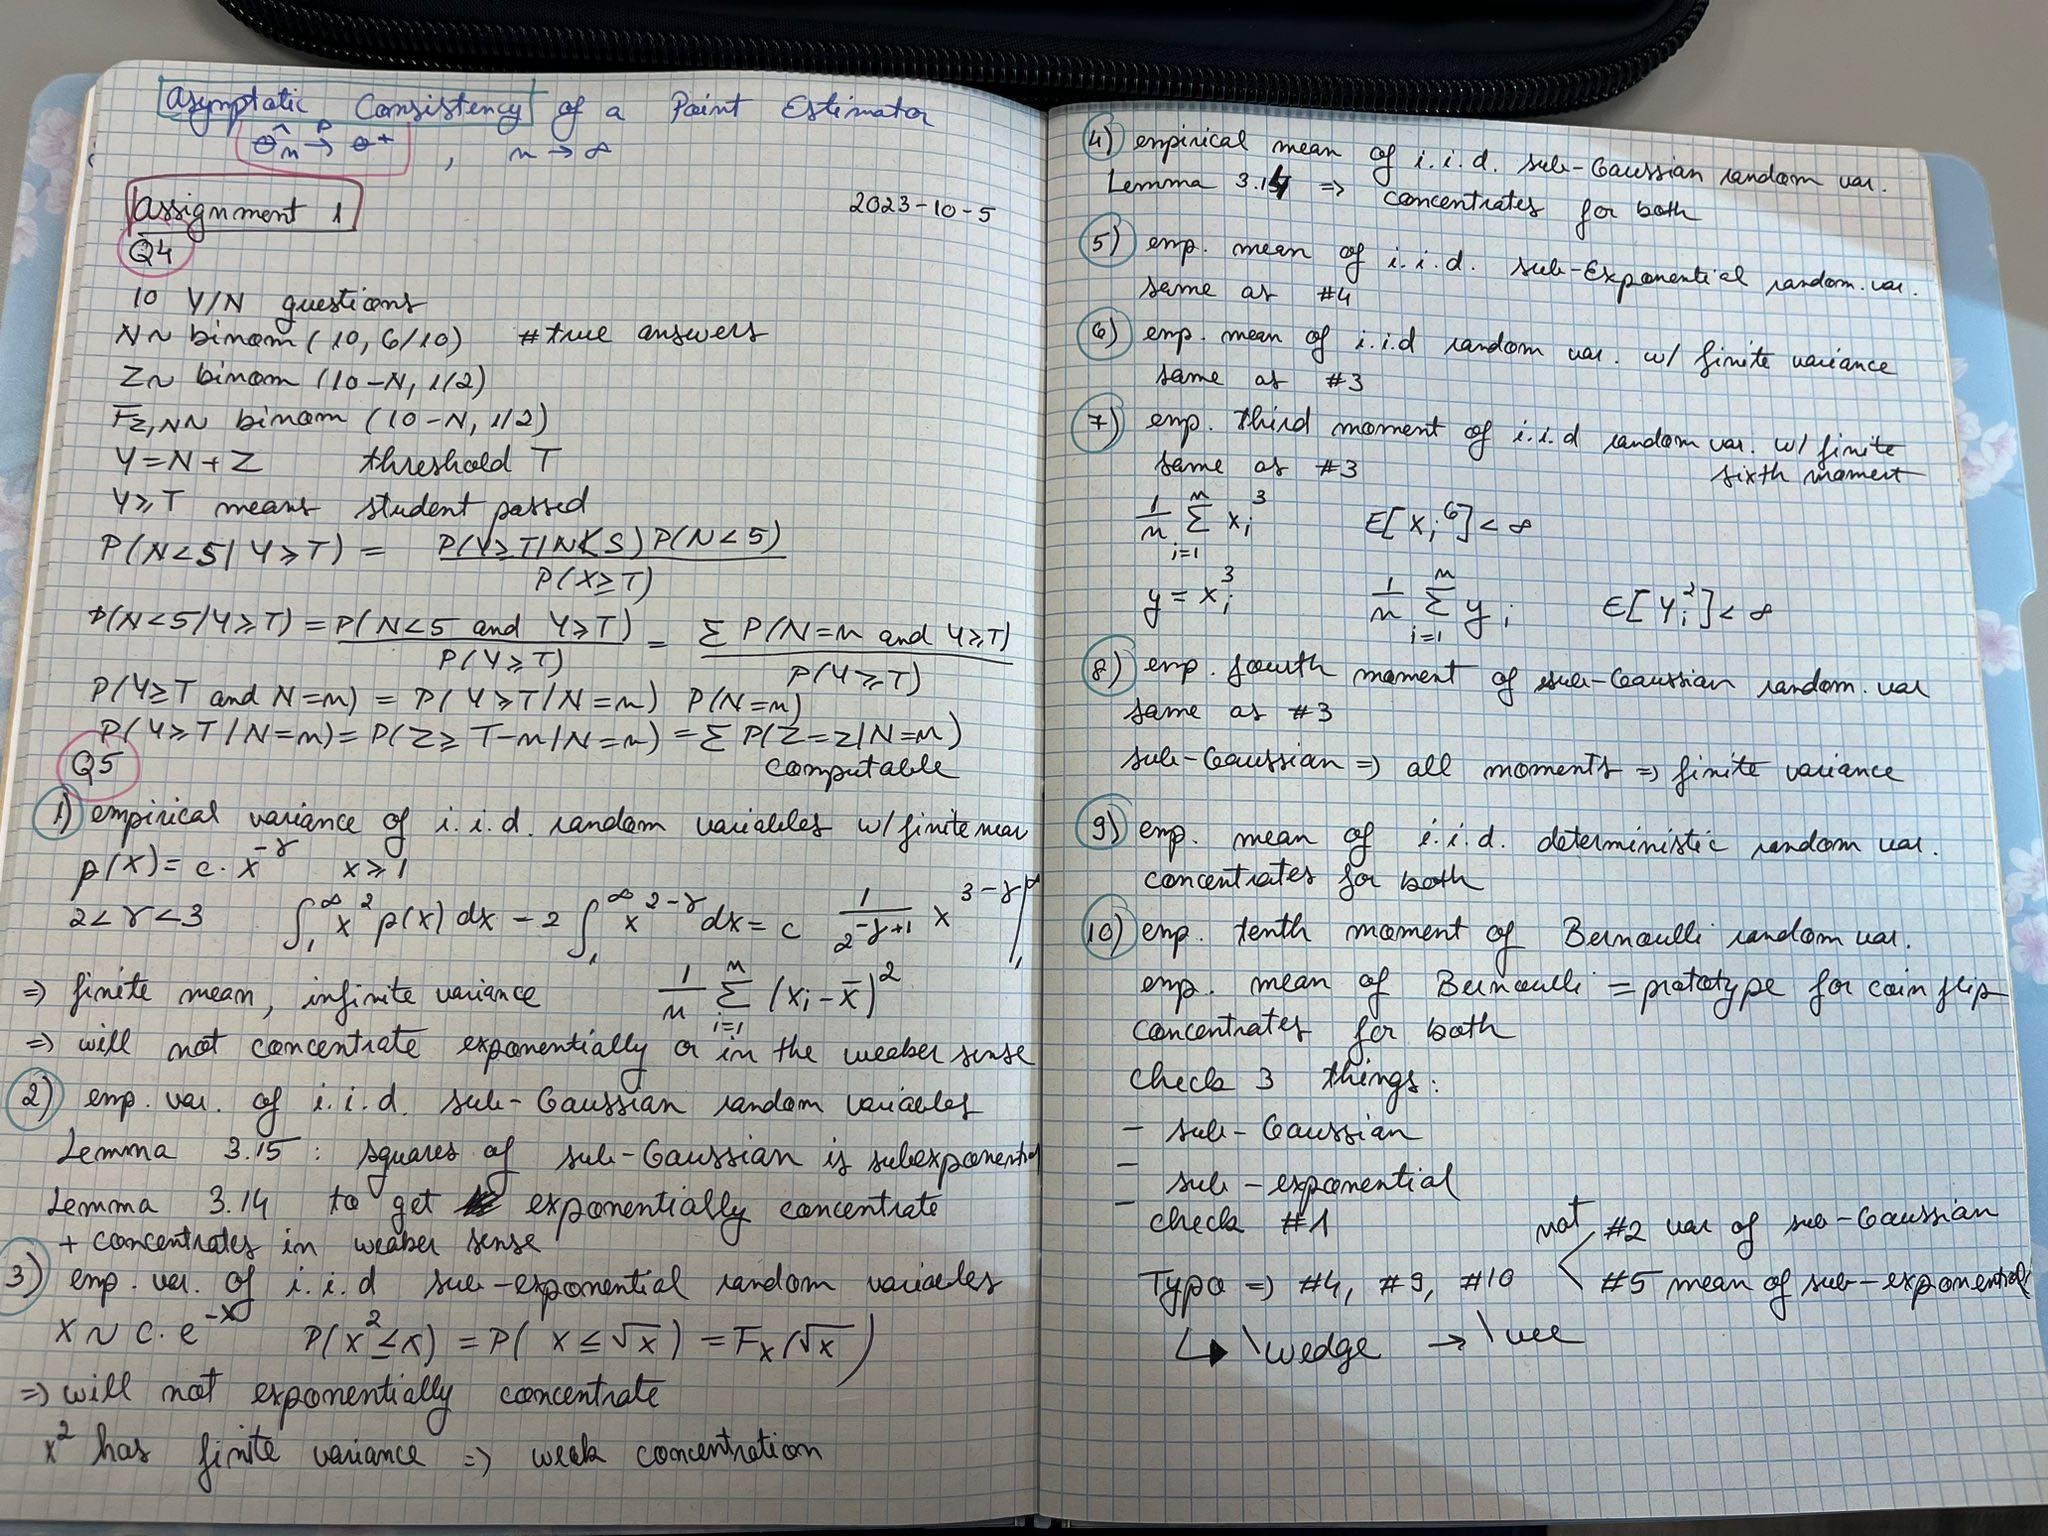 Asymptotic Consistency of a Point Estimator
θ̂_n →^P θ* , n → ∞
Assignment 1
2023-10-5
Q4
10 Y/N questions
N ~ binom (10, 6/10) # true answers
Z ~ binom (10-N, 1/2)
F_{Z,N} ~ binom (10-N, 1/2)
Y = N + Z threshold T
Y ≥ T means student passed
P(N<5 | Y ≥ T) = P(Y ≥ T | N<5) P(N<5) / P(X ≥ T)
P(N<5 | Y ≥ T) = P(N<5 and Y ≥ T) / P(Y ≥ T) = Σ P(N=n and Y ≥ T) / P(Y ≥ T)
P(Y ≥ T and N=n) = P(Y ≥ T | N=n) P(N=n)
P(Y ≥ T | N=n) = P(Z ≥ T-n | N=n) = Σ P(Z=z | N=n)
computable
Q5
1) empirical variance of i.i.d. random variables w/ finite mean
p(x) = c · x^{-γ} x ≥ 1
2 < γ < 3 ∫_1^∞ x^2 p(x) dx - 2 ∫_1^∞ x^{2-γ} dx = c 1/(2^{-γ+1}) x^{3-γ} |_1^∞
⇒ finite mean, infinite variance 1/n Σ_{i=1}^n (x_i - x̄)^2
⇒ will not concentrate exponentially or in the weaker sense
2) emp. var. of i.i.d. sub-Gaussian random variables
Lemma 3.15 : squares of sub-Gaussian is subexponential
Lemma 3.14 to get exponentially concentrate
+ concentrates in weaker sense
3) emp. var. of i.i.d sub-exponential random variables
X ~ c · e^{-x} P(x^2 ≤ x) = P( x ≤ √x ) = F_X (√x )
⇒ will not exponentially concentrate
x^2 has finite variance ⇒ weak concentration
4) empirical mean of i.i.d. sub-Gaussian random var.
Lemma 3.14 ⇒ concentrates for both
5) emp. mean of i.i.d. sub-Exponential random. var.
same as #4
6) emp. mean of i.i.d random var. w/ finite variance
same as #3
7) emp. third moment of i.i.d random var. w/ finite
same as #3 sixth moment
1/n Σ_{i=1}^n x_i^3 E[x_i^6] < ∞
y = x_i^3 1/n Σ_{i=1}^n y_i E[Y_i^2] < ∞
8) emp. fourth moment of sub-Gaussian random. var
same as #3
sub-Gaussian ⇒ all moments ⇒ finite variance
9) emp. mean of i.i.d. deterministic random var.
concentrates for both
10) emp. tenth moment of Bernoulli random var.
emp. mean of Bernoulli = prototype for coin flip
concentrates for both
check 3 things:
- sub-Gaussian
- sub-exponential
- check #1
not #2 var of sub-Gaussian
Typo ⇒ #4, #9, #10 < #5 mean of sub-exponential
↳ \wedge → \vee